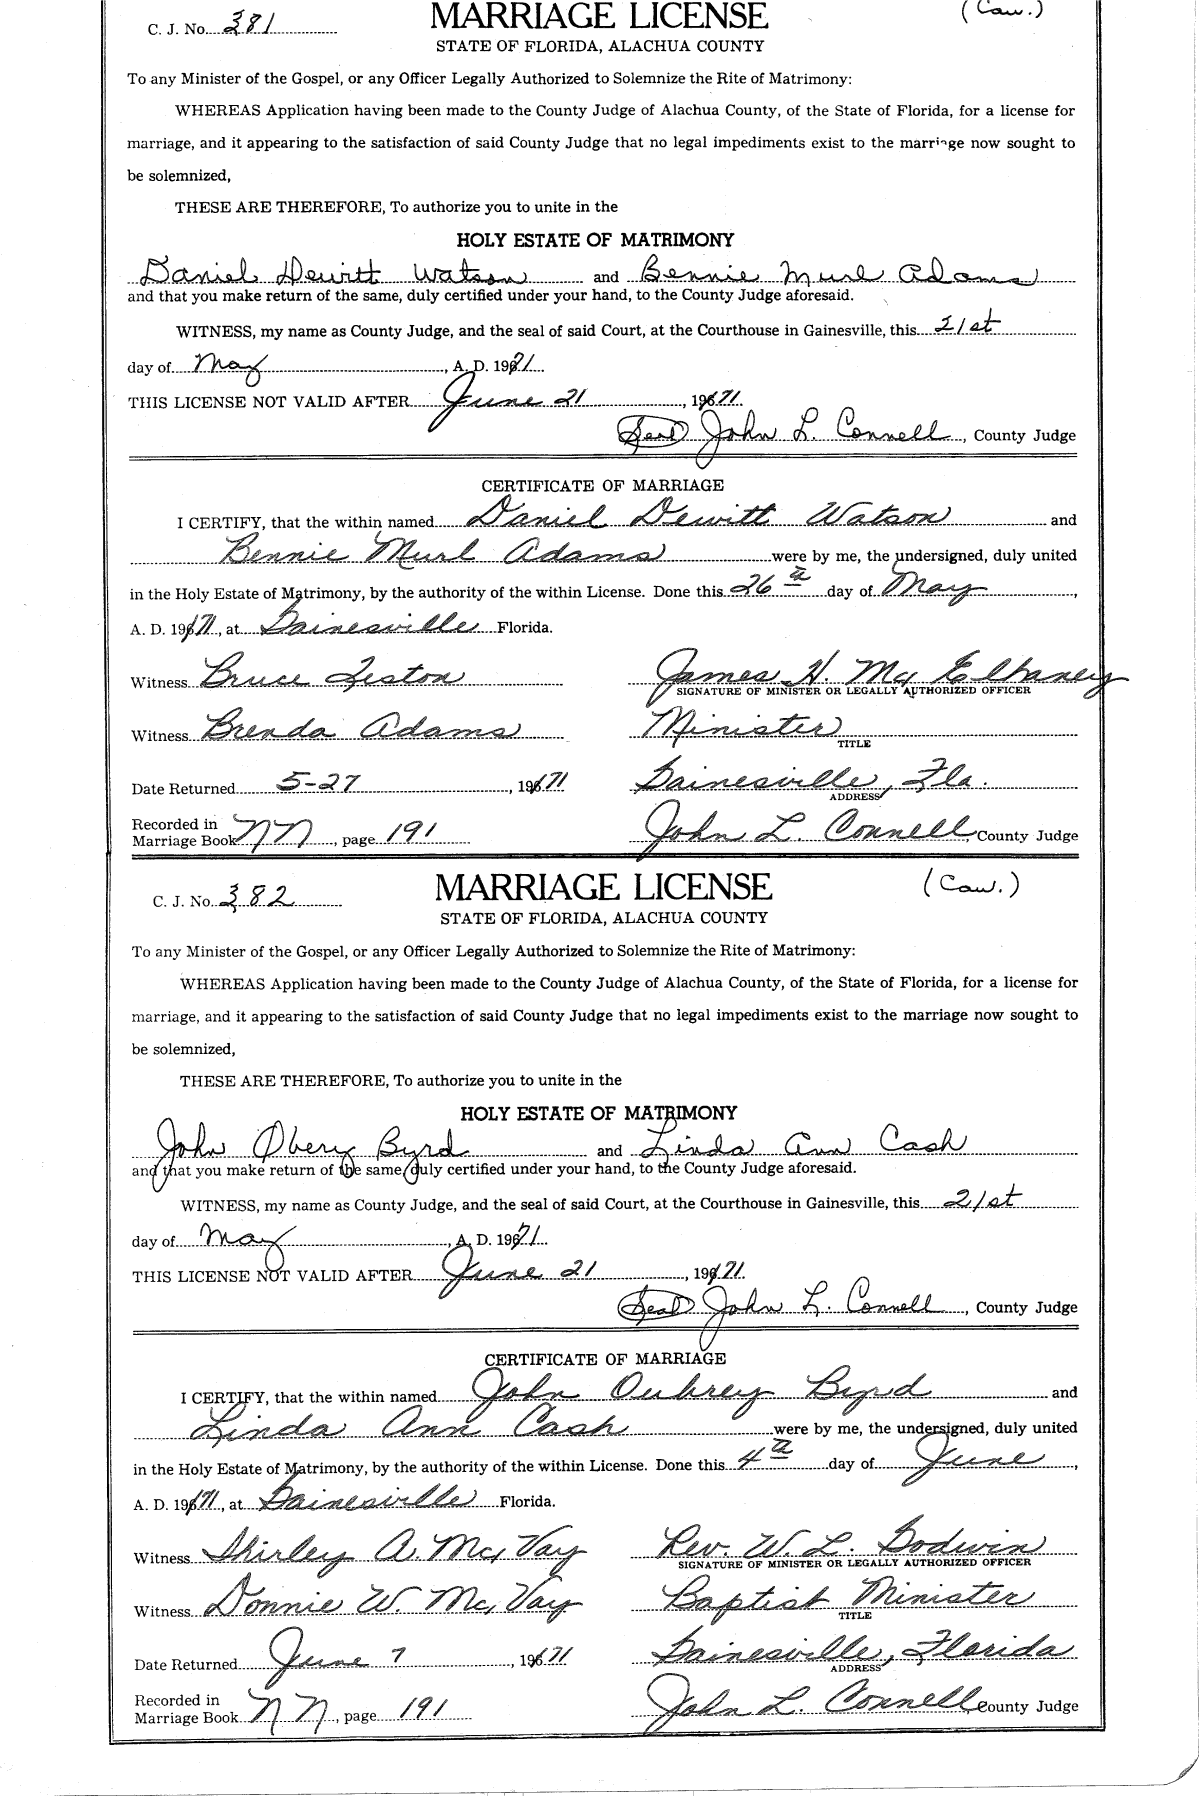 C. J. No. 381 MARRIAGE LICENSE (Cau.)
STATE OF FLORIDA, ALACHUA COUNTY
To any Minister of the Gospel, or any Officer Legally Authorized to Solemnize the Rite of Matrimony:
WHEREAS Application having been made to the County Judge of Alachua County, of the State of Florida, for a license for
marriage, and it appearing to the satisfaction of said County Judge that no legal impediments exist to the marriage now sought to
be solemnized,
THESE ARE THEREFORE, To authorize you to unite in the
HOLY ESTATE OF MATRIMONY
Daniel Dewitt Watson and Bennie Murl Adams
and that you make return of the same, duly certified under your hand, to the County Judge aforesaid.
WITNESS, my name as County Judge, and the seal of said Court, at the Courthouse in Gainesville, this 21st
day of May, A. D. 1971
THIS LICENSE NOT VALID AFTER June 21, 1971
(Seal) John L. Connell, County Judge
CERTIFICATE OF MARRIAGE
I CERTIFY, that the within named Daniel Dewitt Watson and
Bennie Murl Adams were by me, the undersigned, duly united
in the Holy Estate of Matrimony, by the authority of the within License. Done this 26th day of May,
A. D. 1971, at Gainesville Florida.
Witness Bruce Leston James H. McElhaney
SIGNATURE OF MINISTER OR LEGALLY AUTHORIZED OFFICER
Witness Brenda Adams Minister
TITLE
Date Returned 5-27, 1971 Gainesville, Fla.
ADDRESS
Recorded in
Marriage Book NN, page 191 John L. Connell County Judge
C. J. No. 382 MARRIAGE LICENSE (Cau.)
STATE OF FLORIDA, ALACHUA COUNTY
To any Minister of the Gospel, or any Officer Legally Authorized to Solemnize the Rite of Matrimony:
WHEREAS Application having been made to the County Judge of Alachua County, of the State of Florida, for a license for
marriage, and it appearing to the satisfaction of said County Judge that no legal impediments exist to the marriage now sought to
be solemnized,
THESE ARE THEREFORE, To authorize you to unite in the
HOLY ESTATE OF MATRIMONY
John Obery Byrd and Linda Ann Cash
and that you make return of the same, duly certified under your hand, to the County Judge aforesaid.
WITNESS, my name as County Judge, and the seal of said Court, at the Courthouse in Gainesville, this 21st
day of May, A. D. 1971
THIS LICENSE NOT VALID AFTER June 21, 1971
(Seal) John L. Connell, County Judge
CERTIFICATE OF MARRIAGE
I CERTIFY, that the within named John Oubrey Byrd and
Linda Ann Cash were by me, the undersigned, duly united
in the Holy Estate of Matrimony, by the authority of the within License. Done this 4th day of June,
A. D. 1971, at Gainesville Florida.
Witness Shirley A. McVay Rev. W. L. Godwin
SIGNATURE OF MINISTER OR LEGALLY AUTHORIZED OFFICER
Witness Donnie W. McVay Baptist Minister
TITLE
Date Returned June 7, 1971 Gainesville, Florida
ADDRESS
Recorded in
Marriage Book NN, page 191 John L. Connell County Judge